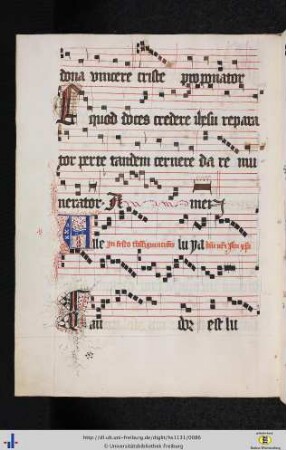 dona vincere criste propinator
Et quod doces credere ihesu repara
tor per te tandem cernere da re mu
nerator. Amen
Alle In festo transfigurationis lu ya
Can dor est lu
http://dl.ub.uni-freiburg.de/diglit/hs1131/0086
© Universitätsbibliothek Freiburg